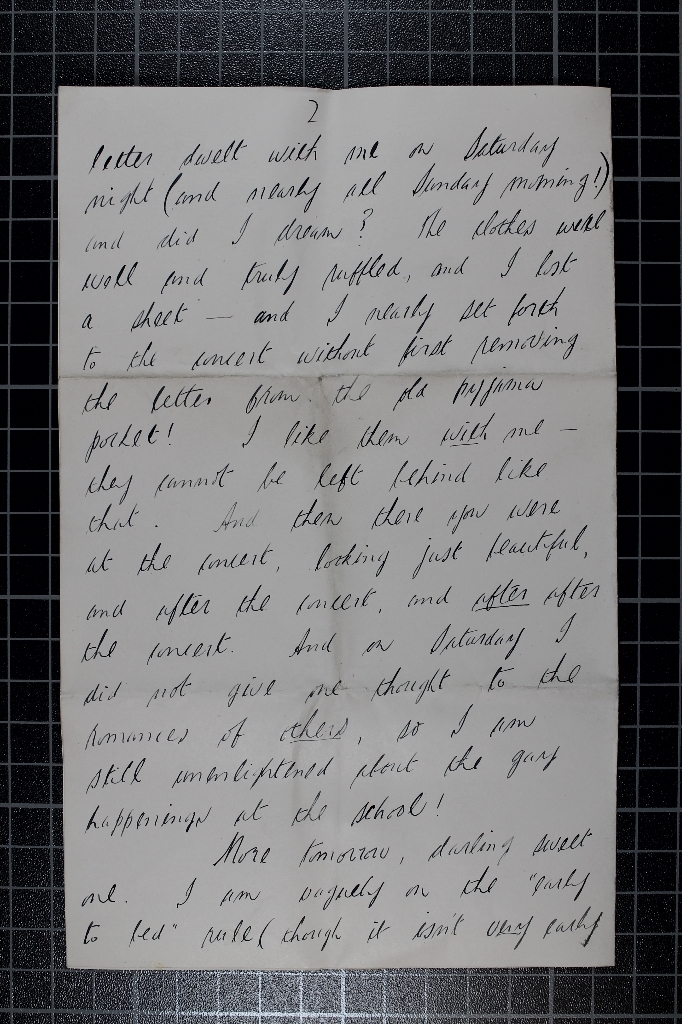 2
letter dwelt with me on Saturday
night (and nearly all Sunday morning!)
and did I dream? The clothes were
well and truly ruffled, and I lost
a sheet — and I nearly set forth
to the concert without first removing
the letter from the old pyjama
pocket! I like them with me —
they cannot be left behind like
that. And then there you were
at the concert, looking just beautiful,
and after the concert, and after after
the concert. And on Saturday I
did not give one thought to the
romances of others, so I am
still unenlightened about the gay
happenings at the school!
More tomorrow, darling sweet
one. I am vaguely on the "early
to bed" rule (though it isn't very early